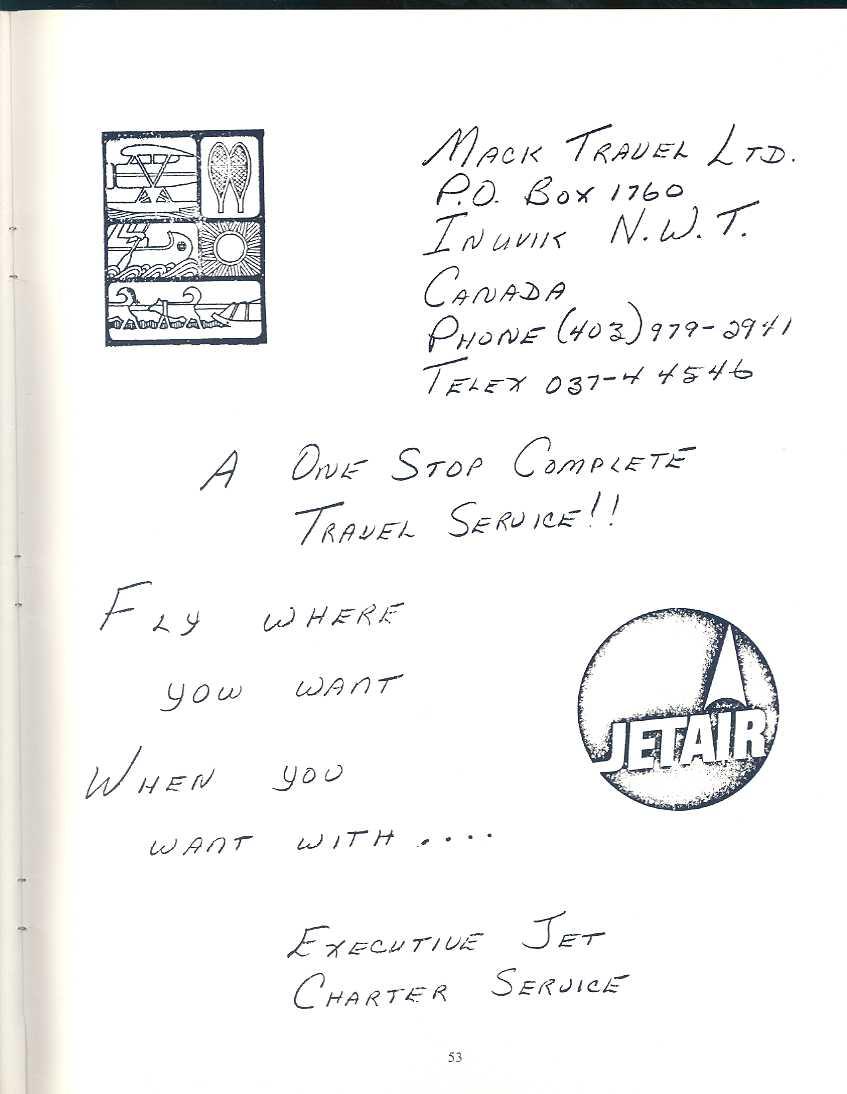 MACK TRAVEL LTD.
P.O. BOX 1760
INUVIK N.W.T.
CANADA
PHONE (403) 979-2941
TELEX 037-4 4546
A ONE STOP COMPLETE
TRAVEL SERVICE!!
FLY WHERE
YOU WANT
JETAIR
WHEN YOU
WANT WITH....
EXECUTIVE JET
CHARTER SERVICE
53